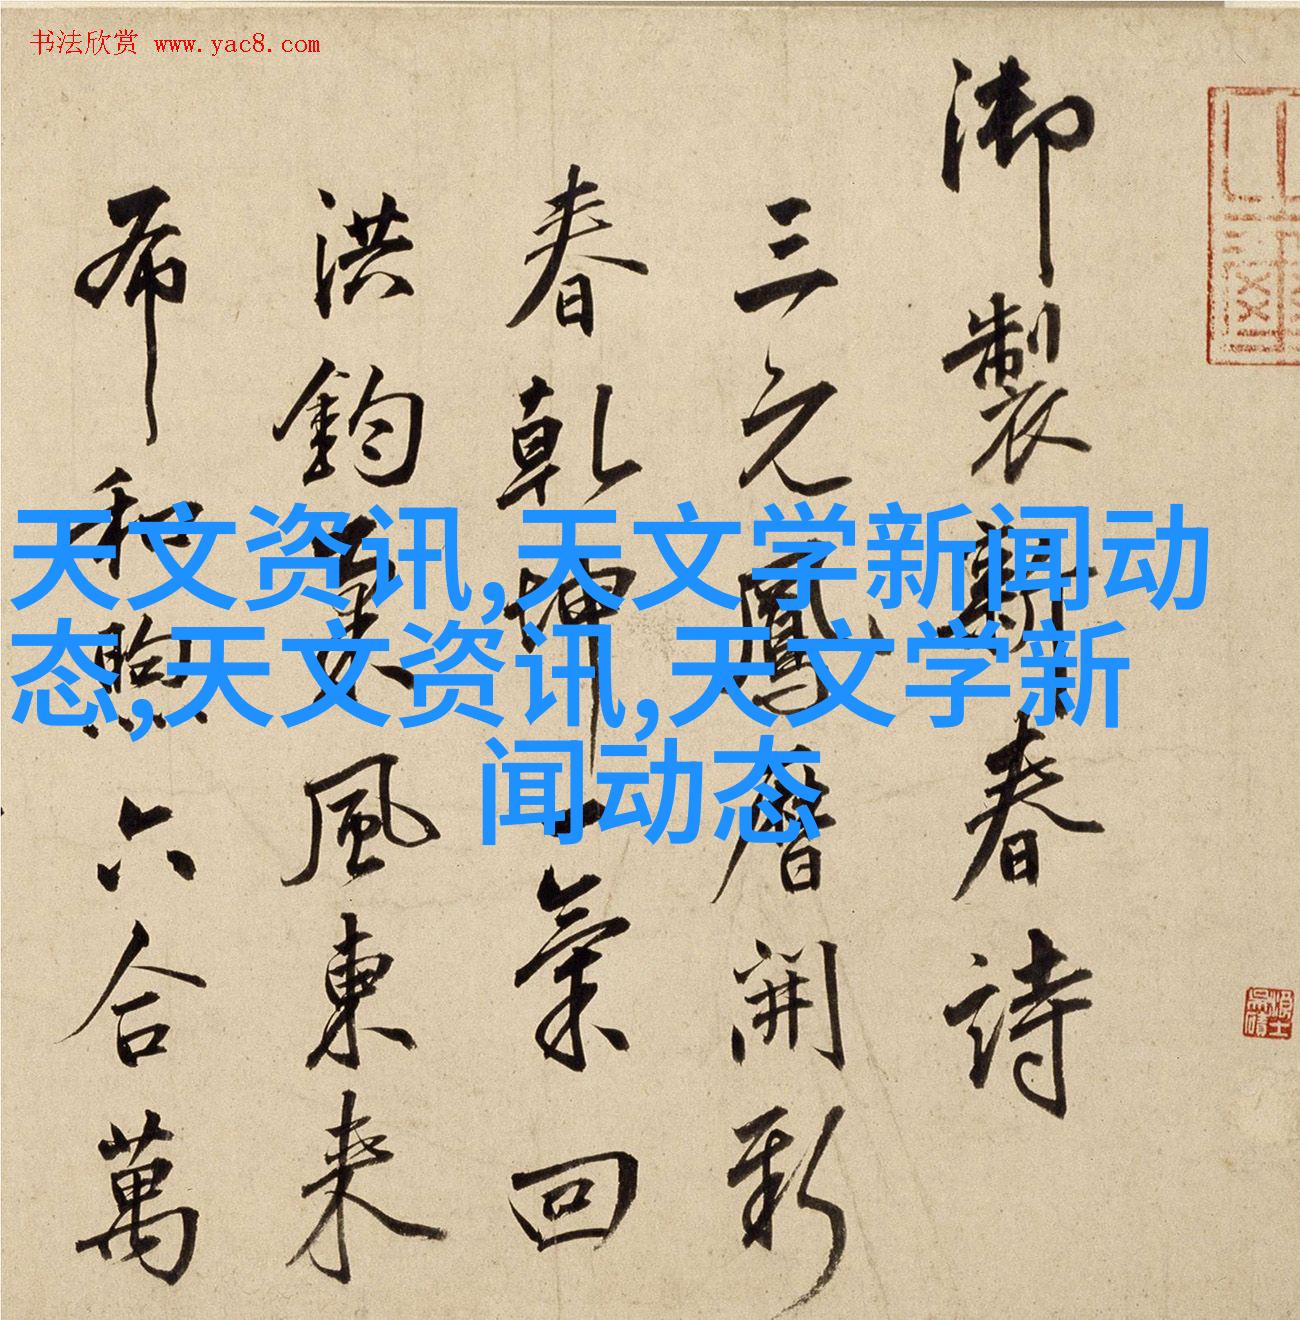 书法欣赏 www.yac8.com
天文资讯,天文学新闻动
态,天文资讯,天文学新
闻动态
御製新春詩
三元鳳曆開新
春乾坤一氣回
洪鈞風東來
布和煦六合萬